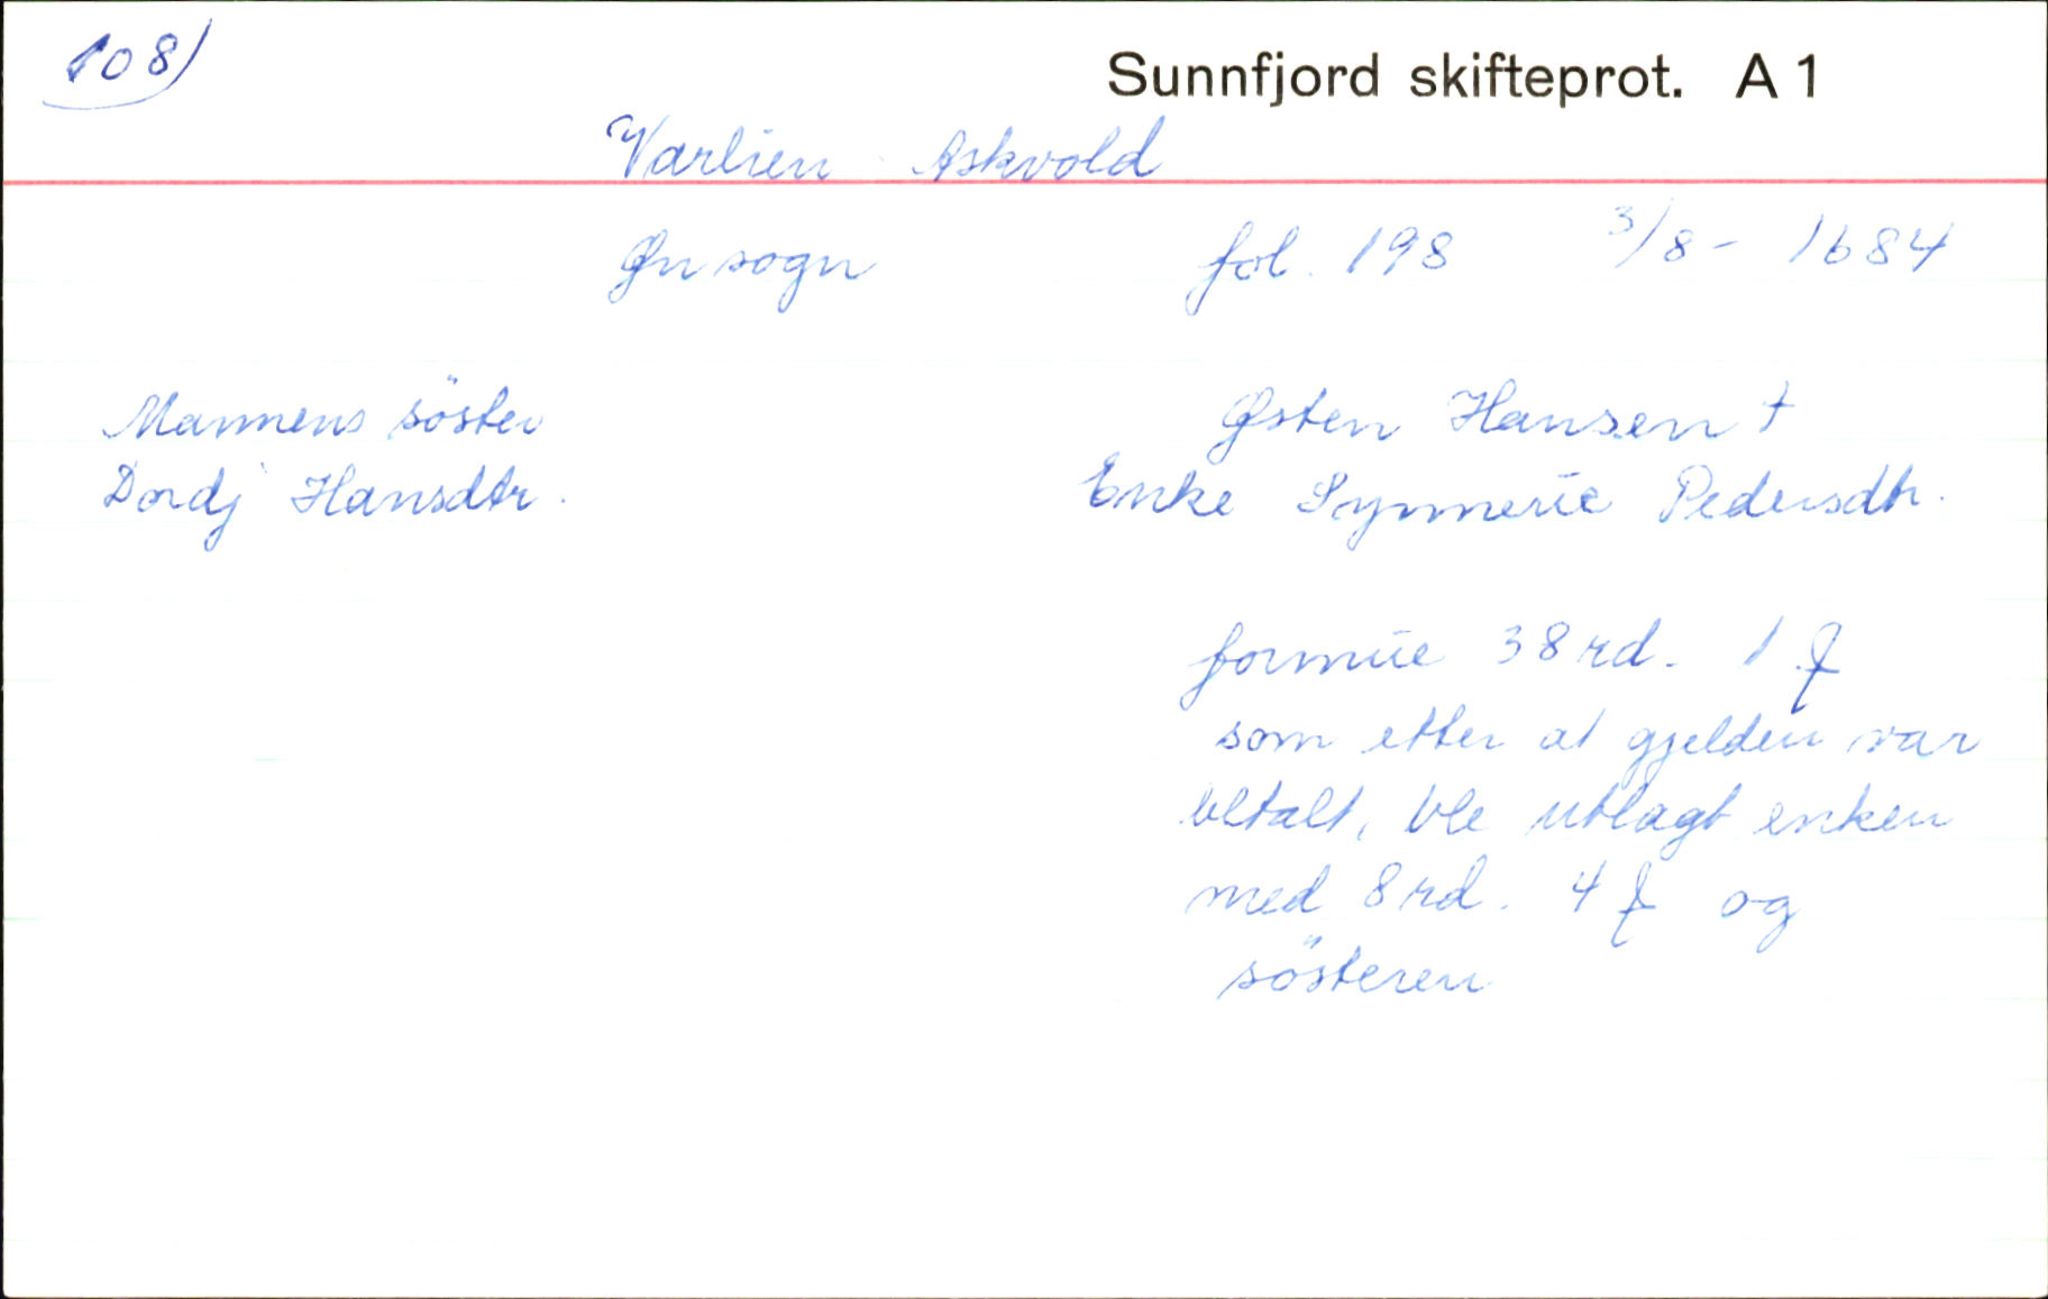 108)
Sunnfjord skifteprot. A 1
Varlien Askvold
Øn sogn fol. 198 3/8 - 1684
Mannens söster Østen Hansen †
Dordj Hansdtr. Enke Synnerie Pedersdtr.
formue 38 rd. 1
som etter at gjelden var
betalt, ble utlagt enken
med 8 rd. 4 og
sösteren